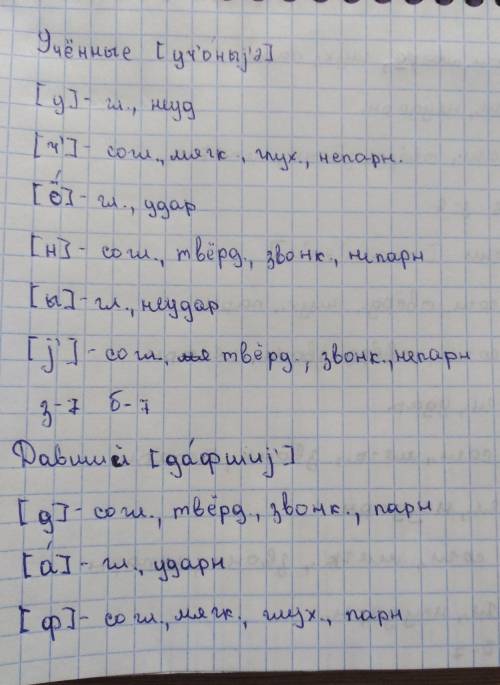 Учённые [уч'о́ныj'э]
[у] - гл., неуд
[ч'] - согл., мягк., глух., непарн.
[ё́] - гл., удар
[н] - согл., твёрд., звонк., непарн
[ы] - гл., неудар
[j'] - согл., твёрд., звонк., непарн
з-7 б-7
Давший [да́фшиj']
[д] - согл., твёрд., звонк., парн
[а́] - гл., ударн
[ф] - согл., мягк., глух., парн